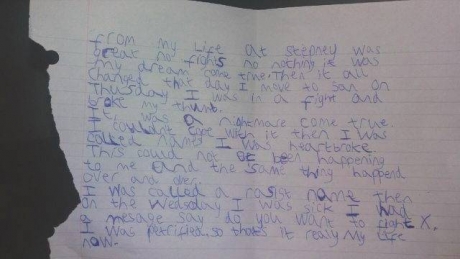 From my Life at stepney was
great no fights no nothing it was
my dream come true. Then it all
changed that day I move to san on
Thursday I was in a fight and
broke my thumb.
It was a nightmare come true
I couldnt cope with it then I was
called names I was heartbroke
This could not be been happening
to me and the same thing happend
over and over
I was called a rasist name then
on the Wedsday I was sick I had
a mesage say do you want to fight X.
I was petrified. so thats it really my life
now.